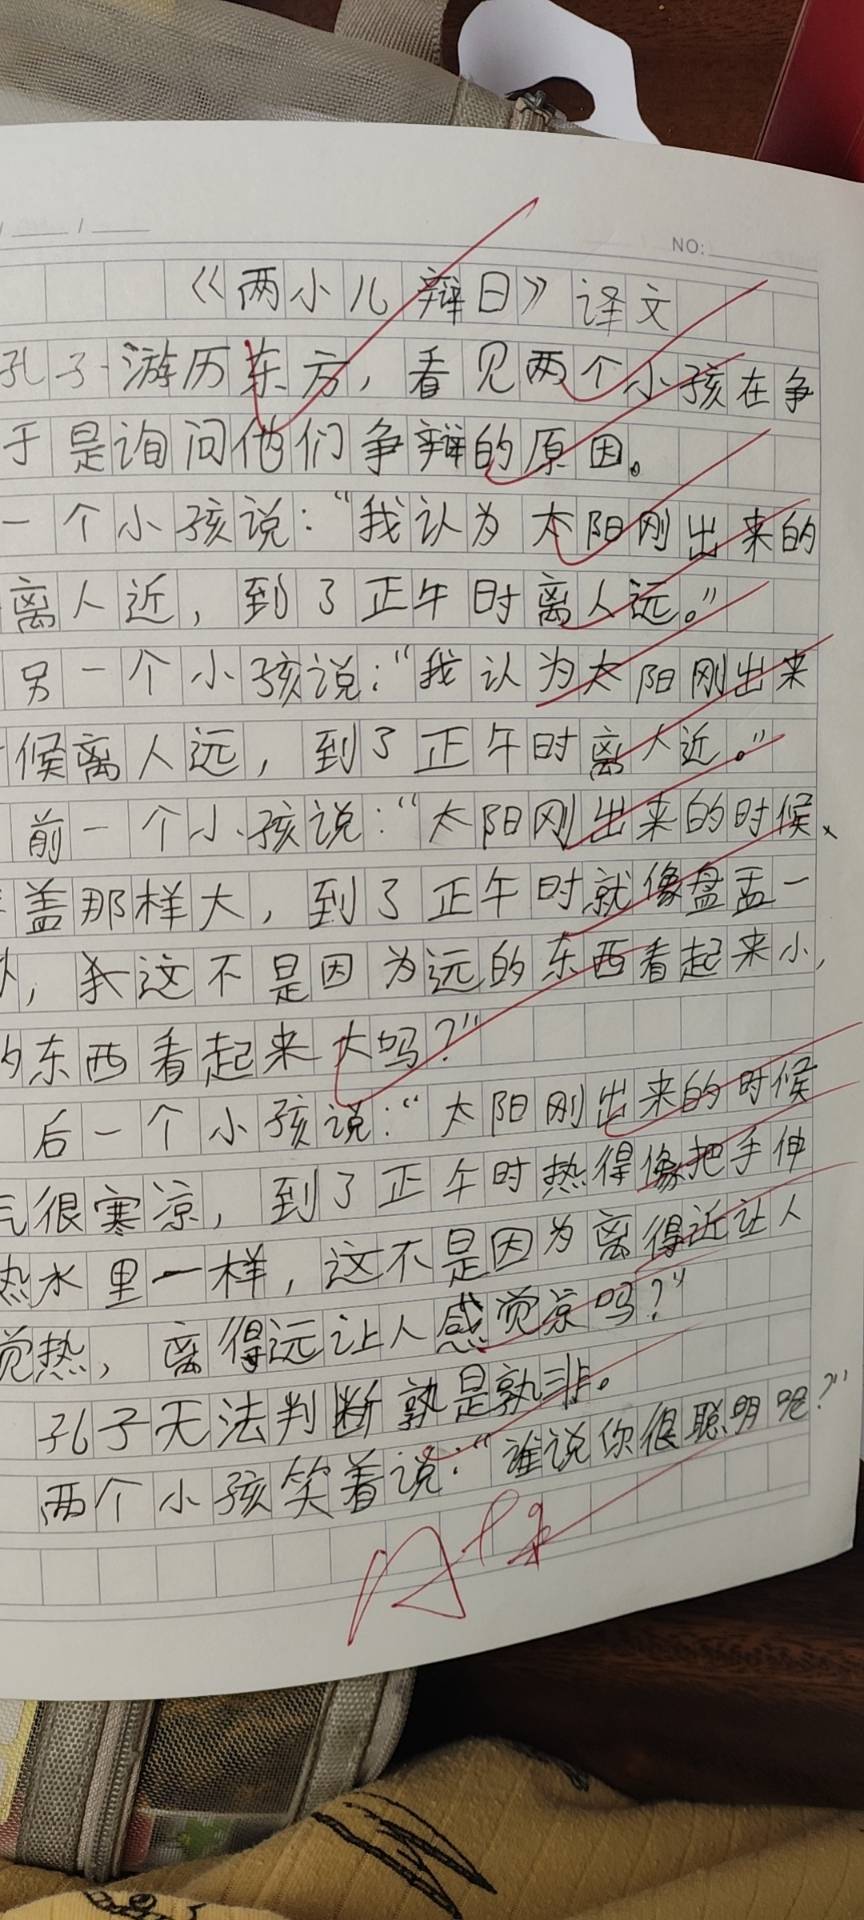 NO:
《两小儿辩日》译文
孔子游历东方，看见两个小孩在争
于是询问他们争辩的原因。
一个小孩说：“我认为太阳刚出来的
离人近，到了正午时离人远。”
另一个小孩说：“我认为太阳刚出来
候离人远，到了正午时离人近。”
前一个小孩说：“太阳刚出来的时候、
盖那样大，到了正午时就像盘盂一
，这不是因为远的东西看起来小，
的东西看起来大吗？”
后一个小孩说：“太阳刚出来的时候
气很寒凉，到了正午时热得像把手伸
热水里一样，这不是因为离得近让人
觉热，离得远让人感觉凉吗？”
孔子无法判断孰是孰非。
两个小孩笑着说：“谁说你很聪明呢？”
A+